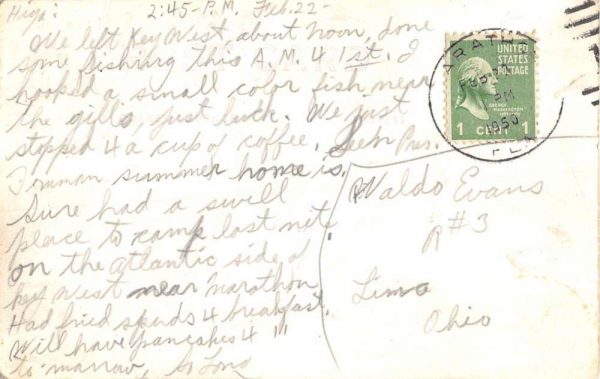 Hiya: 2:45-P.M. Feb. 22-
We left Key West about noon, done
some fishing this A.M. 4 1st. I
hooked a small color fish, near
the gills, just luck. We just
stopped 4 a cup of coffee. Seen Pres.
Truman summer home is.
Sure had a swell
place to camp last nite
on the atlantic side of
Key West near Marathon
Had fried spuds 4 breakfast.
Will have pancakes 4 "
to-marrow, So Long
UNITED
STATES
POSTAGE
GEORGE
WASHINGTON
1 CENT 1
PM
1950
FLA
Waldo Evans
R #3
Lima
Ohio